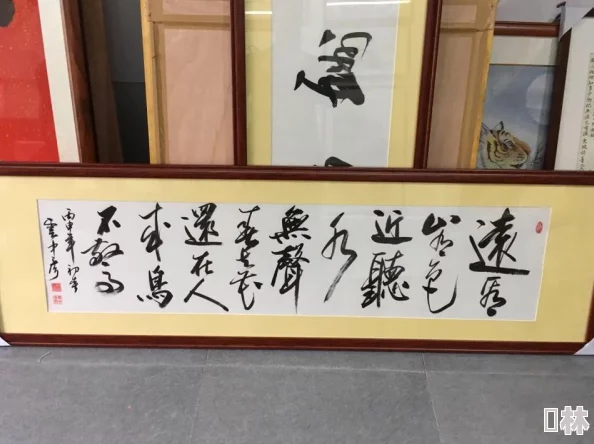 遠看
山有色
近聽
水
無聲
春去花
還在人
来鳥
不驚
丙申年初
林